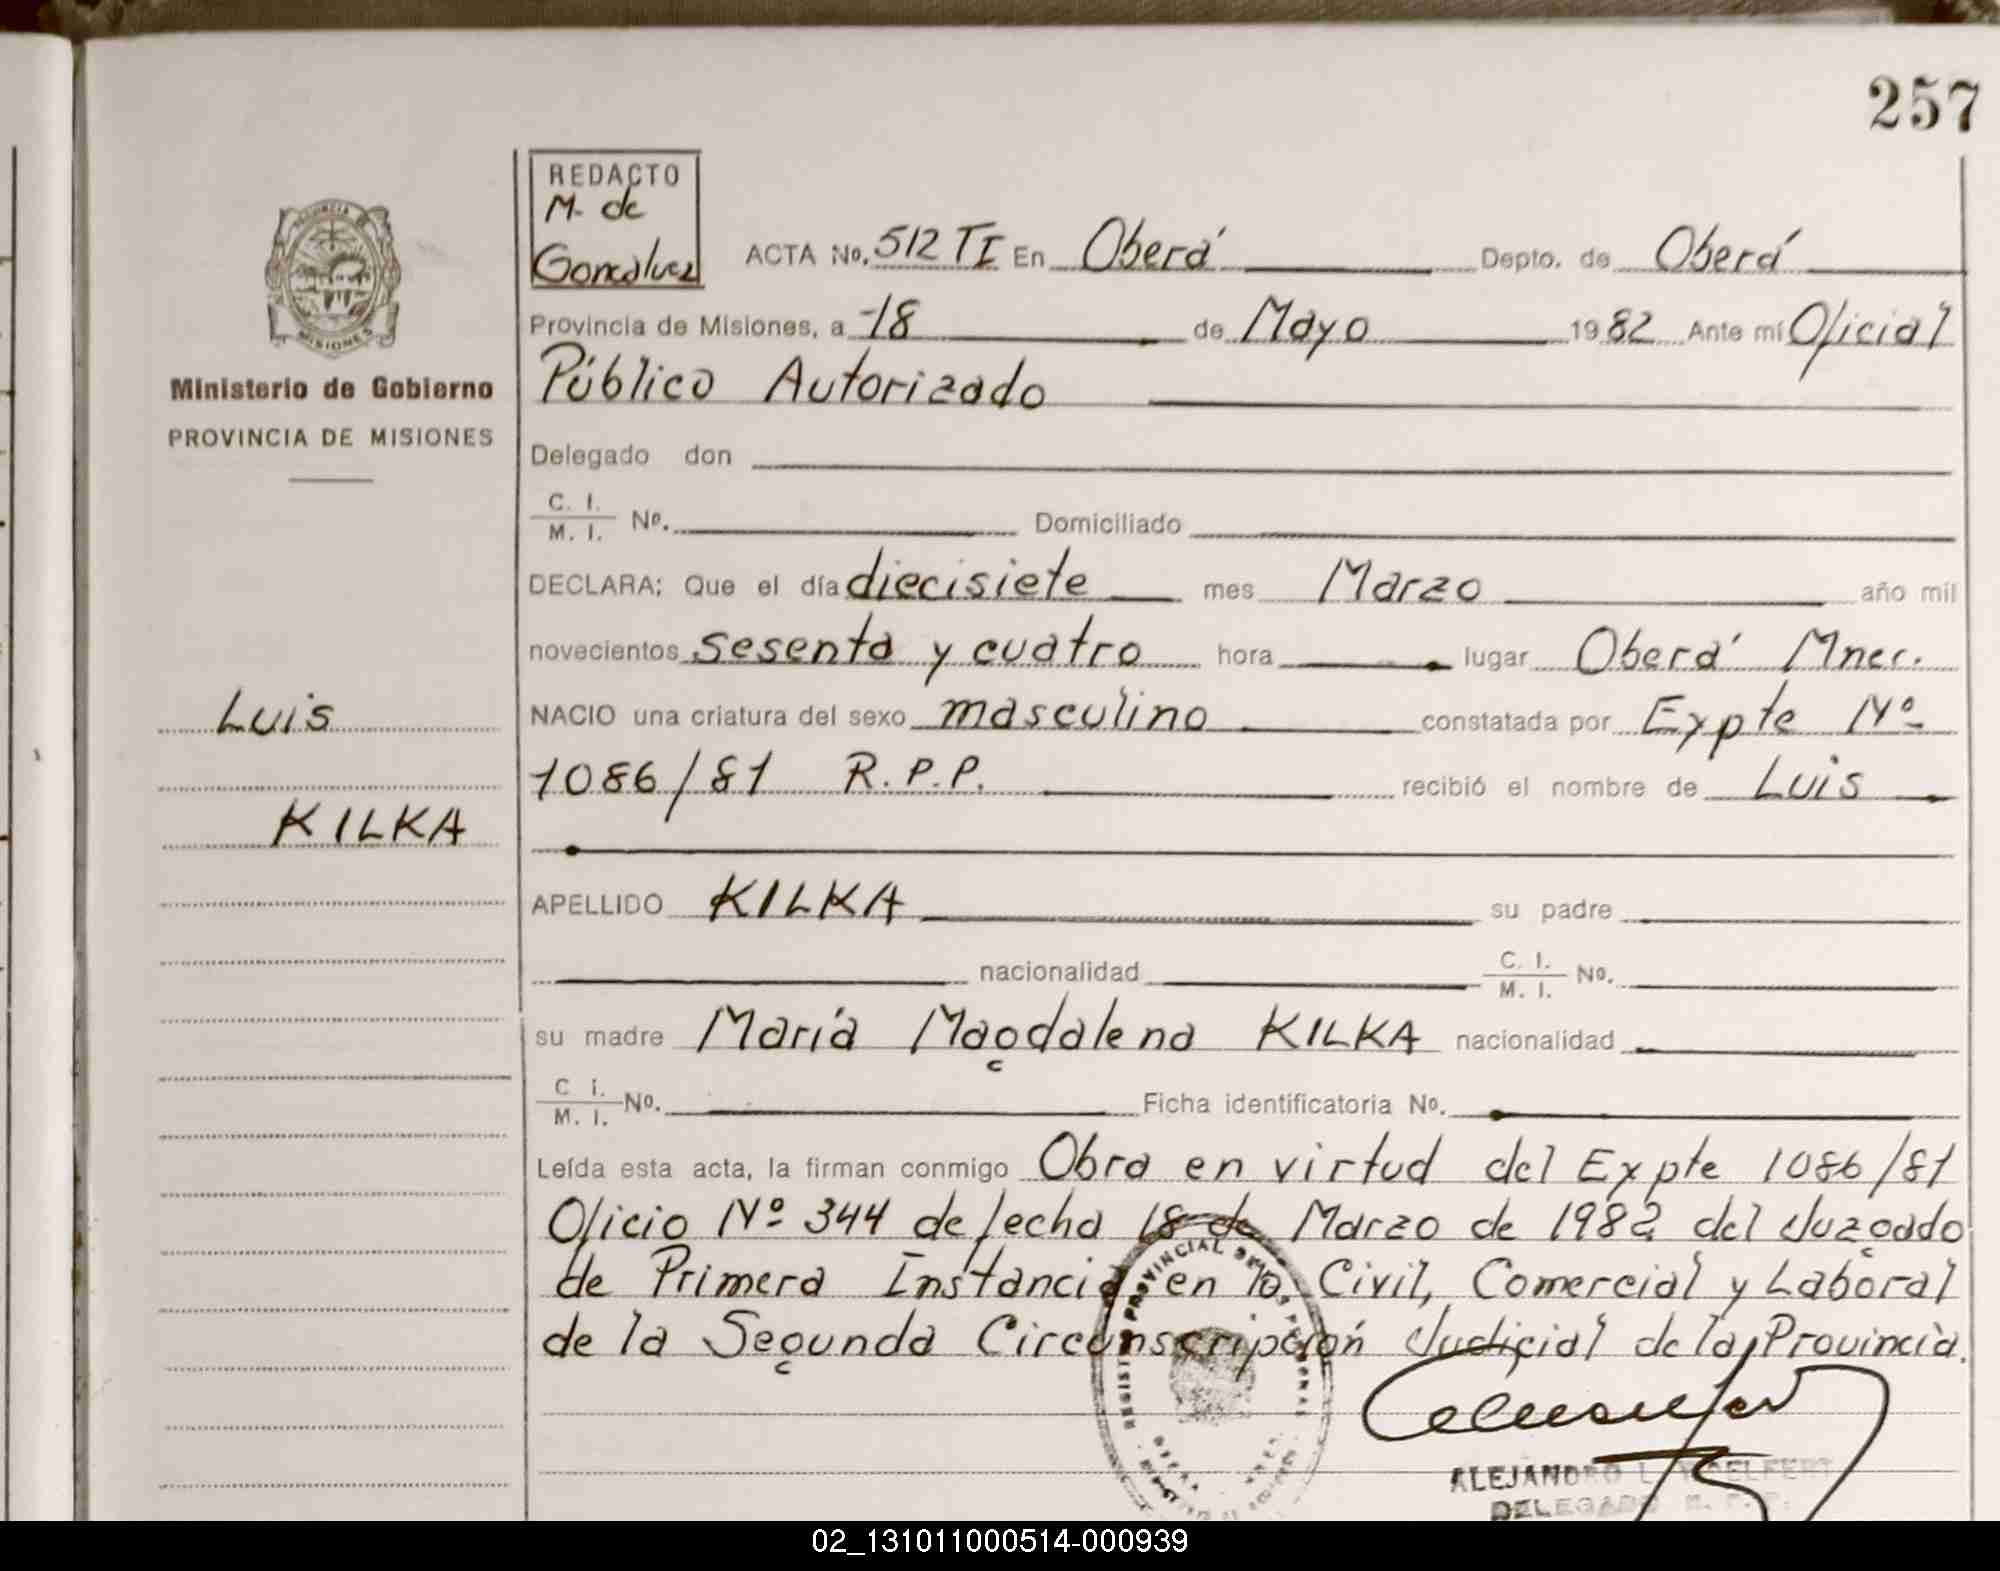 257
REDACTO
M. de
Goncalvez
ACTA No. 512 TI En Oberá Depto. de Oberá
Provincia de Misiones, a 18 de Mayo 1982 Ante mí Oficial
Público Autorizado
Delegado don
C. I. / M. I. No. Domiciliado
DECLARA: Que el día diecisiete mes Marzo año mil
novecientos sesenta y cuatro hora lugar Oberá Mnes.
NACIO una criatura del sexo masculino constatada por Expte Nº
1086/81 R.P.P. recibió el nombre de Luis
APELLIDO KILKA su padre
nacionalidad C. I. / M. I. No.
su madre María Magdalena KILKA nacionalidad
C. I. / M. I. No. Ficha identificatoria No.
Leída esta acta, la firman conmigo Obra en virtud del Expte 1086/81
Oficio Nº 344 de fecha 18 de Marzo de 1982 del Juzgado
de Primera Instancia en lo Civil, Comercial y Laboral
de la Segunda Circunscripción Judicial de la Provincia.
ALEJANDRO L.
DELEGADO R. P. P.
MISIONES
Ministerio de Gobierno
PROVINCIA DE MISIONES
Luis
KILKA
REGISTRO PROVINCIAL DE LAS PERSONAS
02_131011000514-000939